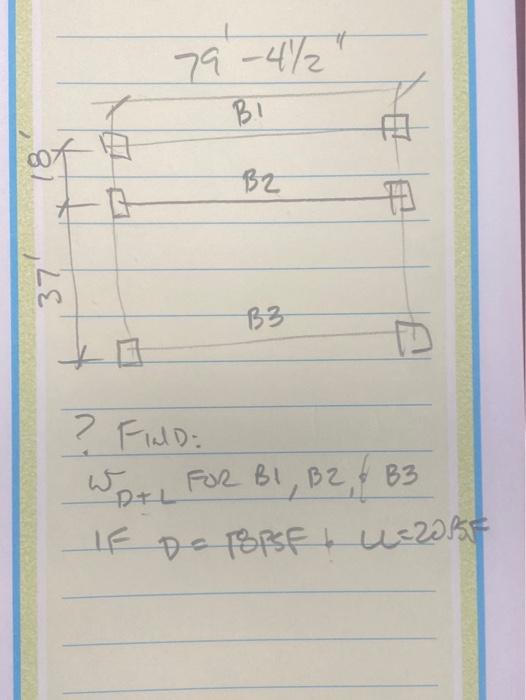 79'-4 1/2"
B1
18'
B2
37'
B3
? FIND:
W D+L FOR B1, B2, & B3
IF D = 18PSF + LL=20PSF